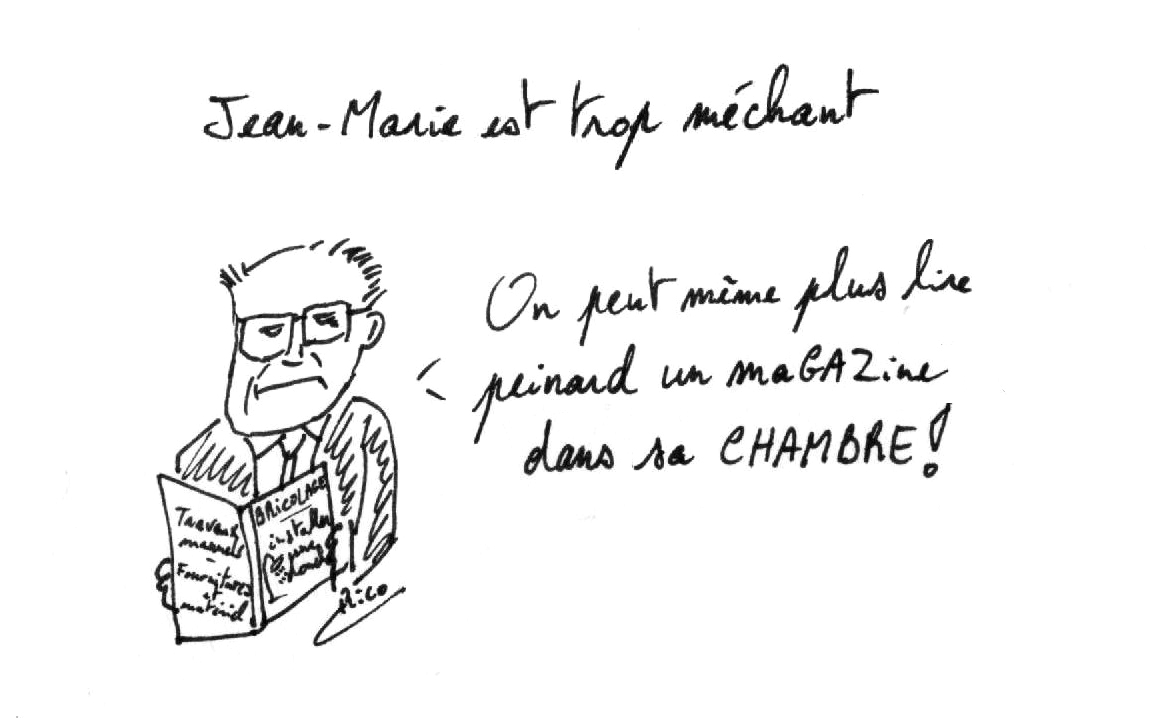 Jean-Marie est trop méchant
On peut même plus lire
peinard un maGAZine
dans sa CHAMBRE!
Travaux
manuels
-
Fournitures
et
matériel
BRICOLAGE
installer
une
douche
Rico